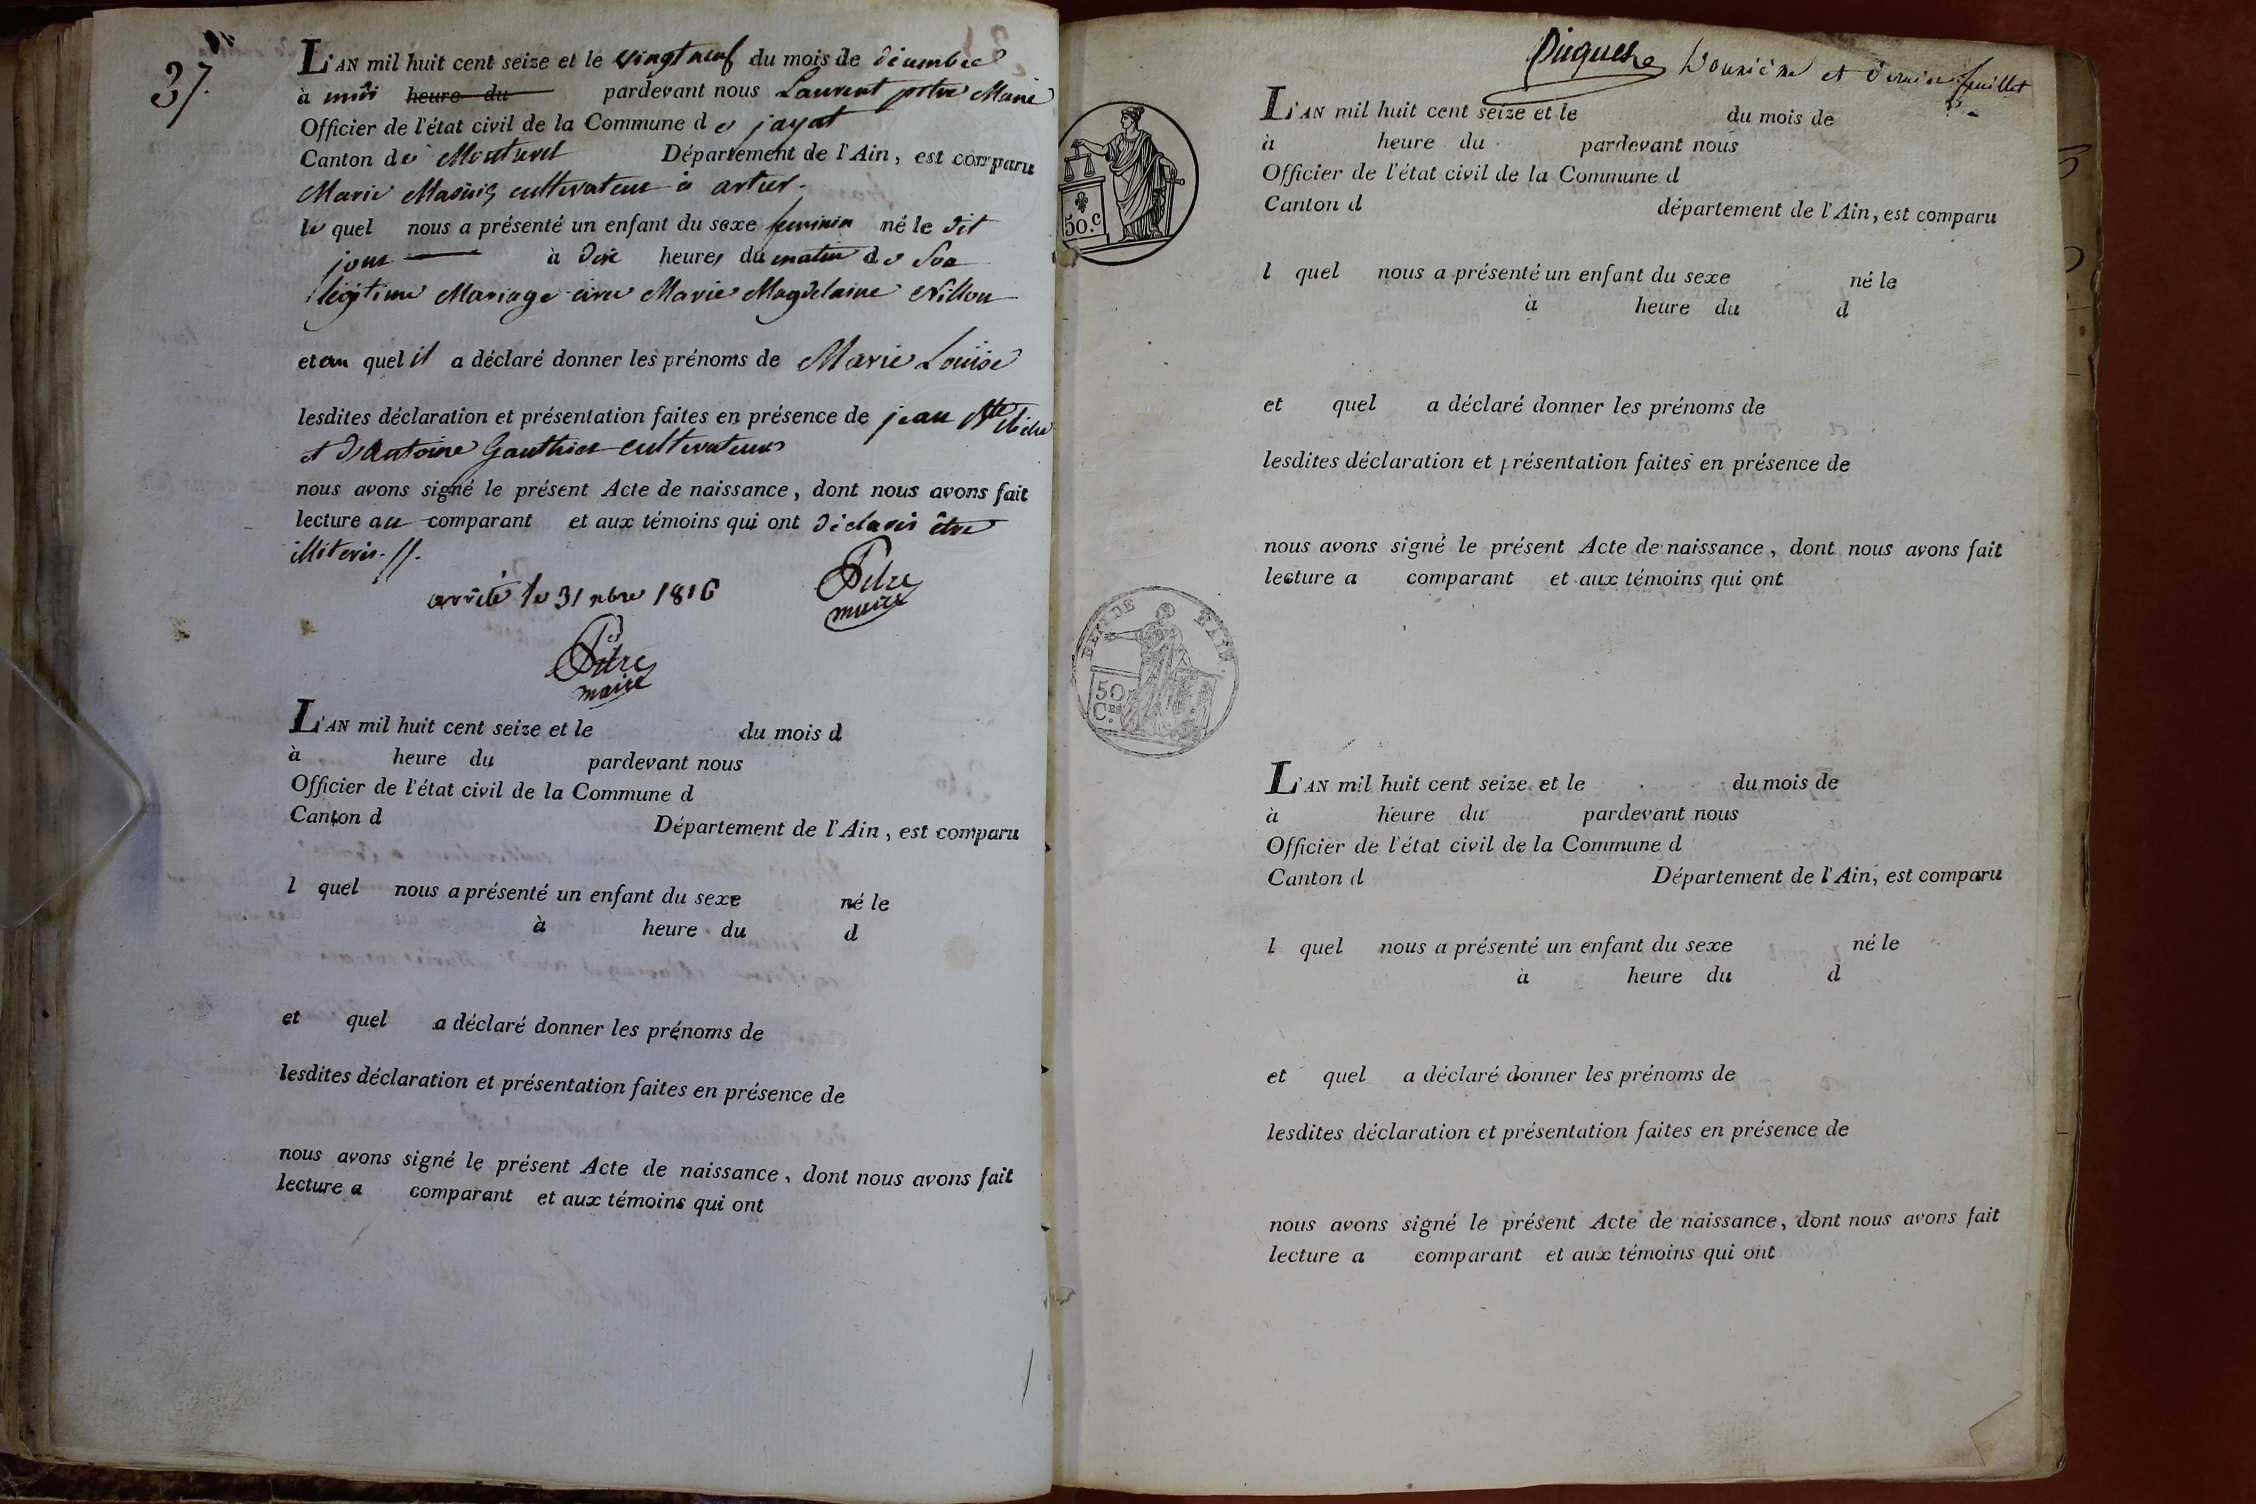 37.
L'AN mil huit cent seize et le vingt neuf du mois de décembre
à midi heure du pardevant nous Laurent pitre Maire
Officier de l'état civil de la Commune de jayat
Canton de Montrevel Département de l'Ain, est comparu
Marie cultivateur à
le quel nous a présenté un enfant du sexe feminin né le dit
jour à dix heures du matin de Son
légitime Mariage avec Marie Magdelaine Nillon
et au quel il a déclaré donner les prénoms de Marie Louise
lesdites déclaration et présentation faites en présence de jean Bte
et d'Antoine Gauthier cultivateurs
nous avons signé le présent Acte de naissance, dont nous avons fait
lecture au comparant et aux témoins qui ont déclarés être
illiterés.
arrêté le 31 xbre 1816
Pitre
maire
Pitre
maire
L'AN mil huit cent seize et le du mois d
à heure du pardevant nous
Officier de l'état civil de la Commune d
Canton d Département de l'Ain, est comparu
l quel nous a présenté un enfant du sexe né le
à heure du d
et quel a déclaré donner les prénoms de
lesdites déclaration et présentation faites en présence de
nous avons signé le présent Acte de naissance, dont nous avons fait
lecture a comparant et aux témoins qui ont
et dernier feuillet
L'AN mil huit cent seize et le du mois de
à heure du pardevant nous
Officier de l'état civil de la Commune d
Canton d département de l'Ain, est comparu
50.c
l quel nous a présenté un enfant du sexe né le
à heure du d
et quel a déclaré donner les prénoms de
lesdites déclaration et présentation faites en présence de
nous avons signé le présent Acte de naissance, dont nous avons fait
lecture a comparant et aux témoins qui ont
50
C.es
L'AN mil huit cent seize et le du mois de
à heure du pardevant nous
Officier de l'état civil de la Commune d
Canton d Département de l'Ain, est comparu
l quel nous a présenté un enfant du sexe né le
à heure du d
et quel a déclaré donner les prénoms de
lesdites déclaration et présentation faites en présence de
nous avons signé le présent Acte de naissance, dont nous avons fait
lecture a comparant et aux témoins qui ont